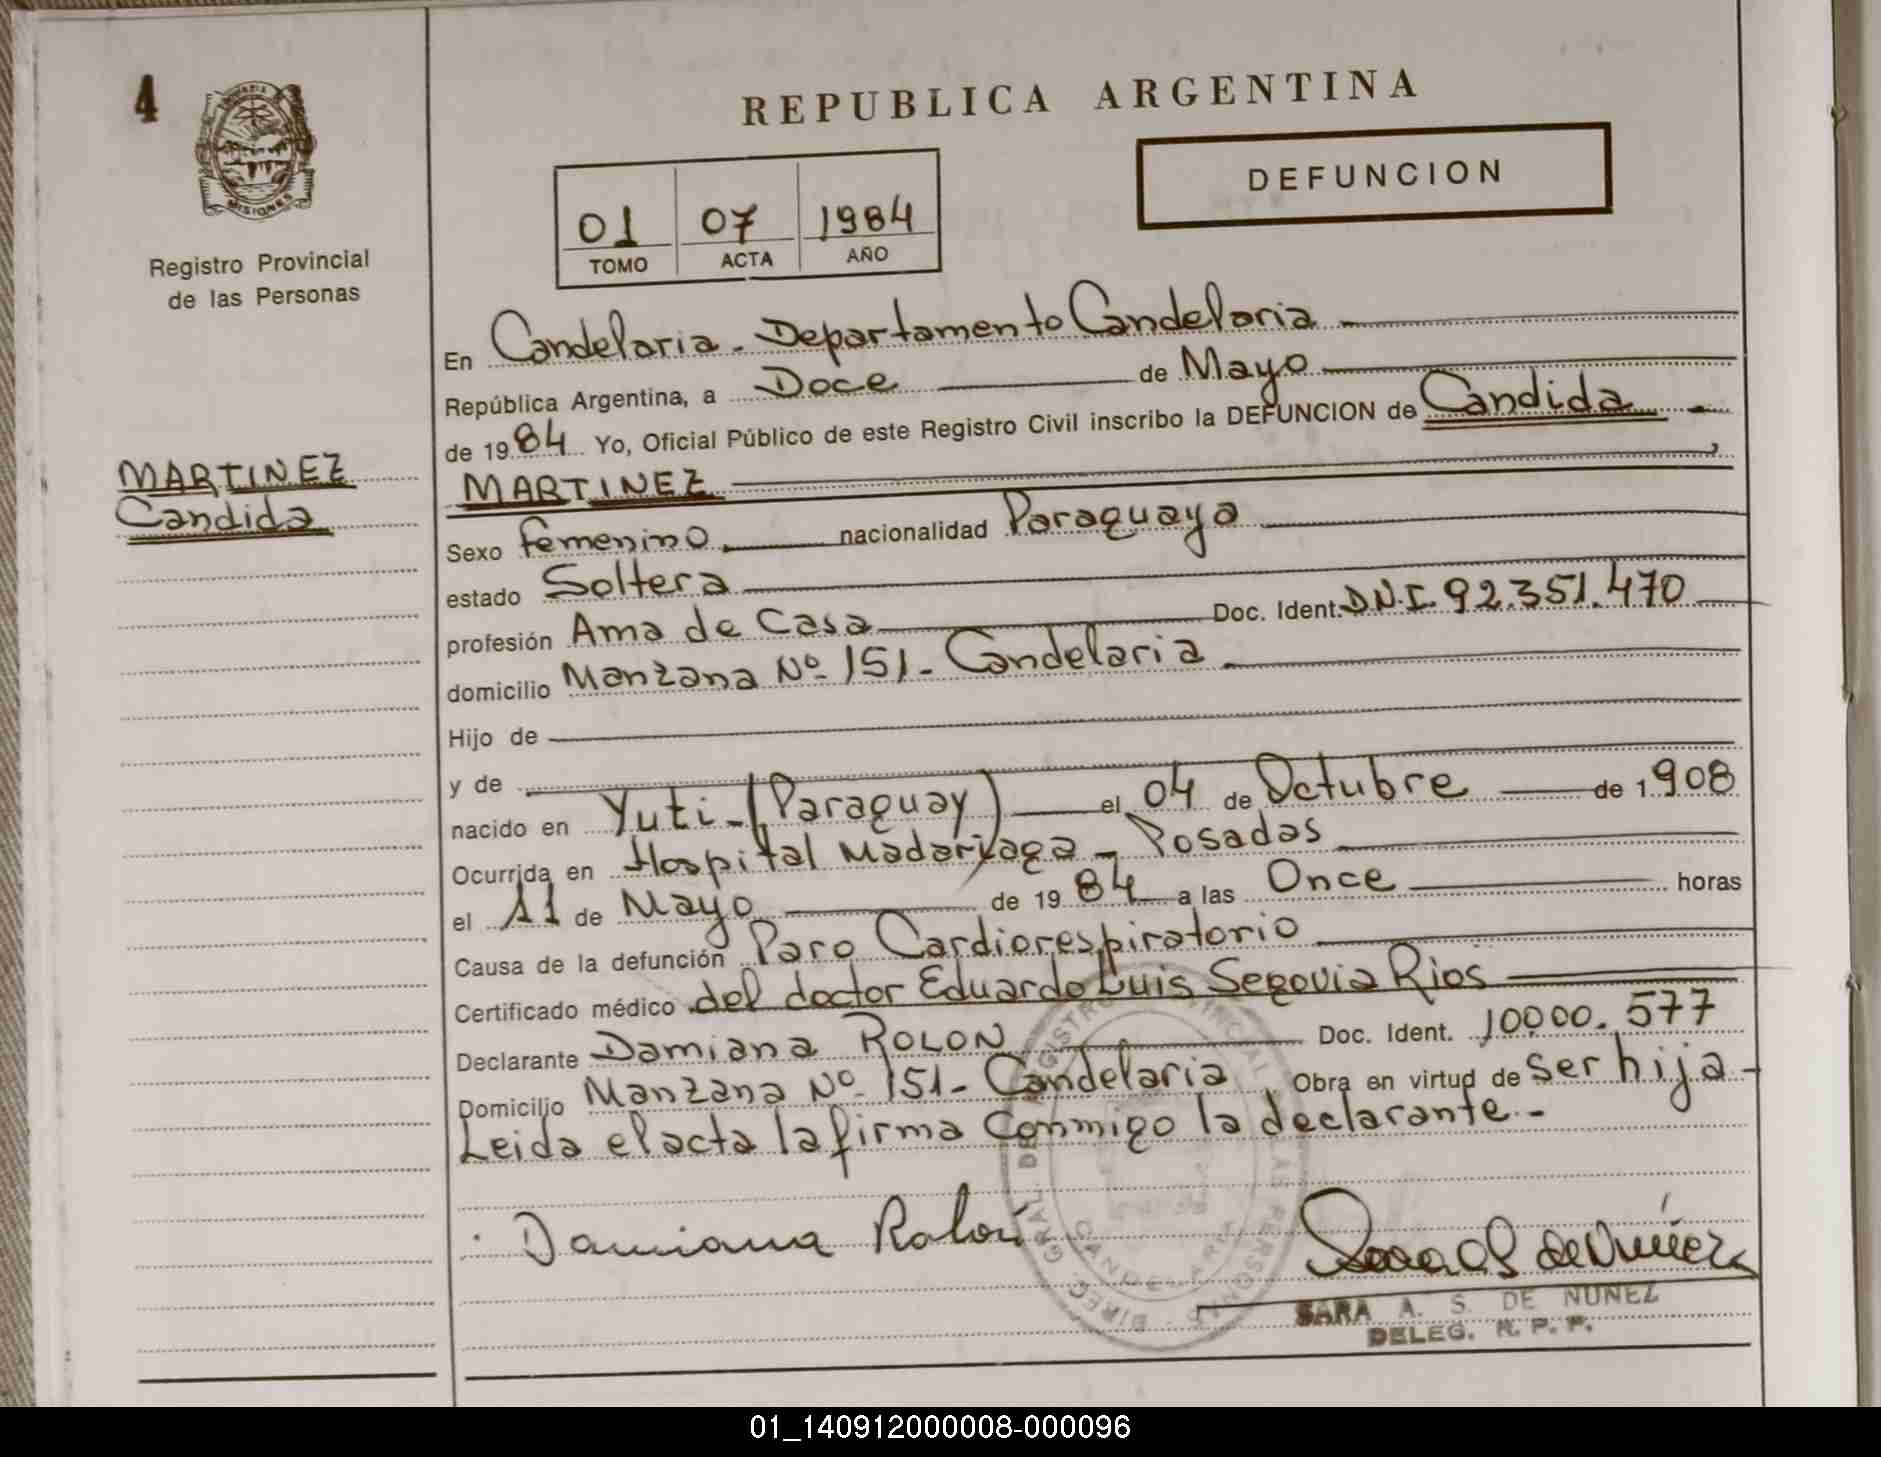 4
MISIONES
Registro Provincial
de las Personas
MARTINEZ
Candida
REPUBLICA ARGENTINA
DEFUNCION
01 07 1984
TOMO ACTA AÑO
En Candelaria - Departamento Candelaria
República Argentina, a Doce de Mayo
de 1984 Yo, Oficial Público de este Registro Civil inscribo la DEFUNCION de Candida
MARTINEZ
Sexo femenino nacionalidad Paraguaya
estado Soltera
profesión Ama de Casa Doc. Ident. D.N.I. 92.351.470
domicilio Manzana Nº 151 - Candelaria
Hijo de
y de
nacido en Yuti - (Paraguay) el 04 de Octubre de 1908
Ocurrida en Hospital Madariaga - Posadas
el 11 de Mayo de 1984 a las Once horas
Causa de la defunción Paro Cardiorespiratorio
Certificado médico del doctor Eduardo Luis Segovia Rios
Declarante Damiana ROLON Doc. Ident. 10000.577
Domicilio Manzana Nº 151 - Candelaria Obra en virtud de ser hija -
Leida el acta la firma Conmigo la declarante. -
Damiana Rolon
SARA A. S. DE NUÑEZ
DELEG. R. P. P.
01_140912000008-000096